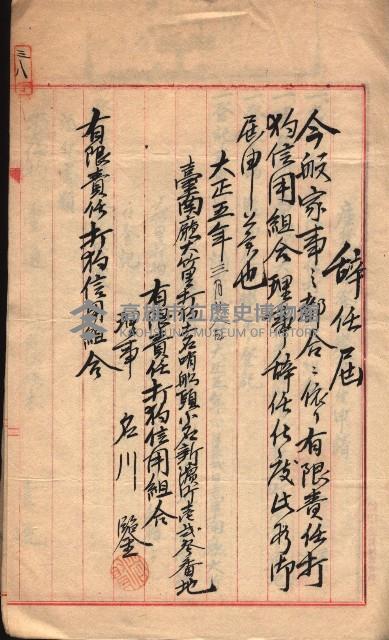 三八
辞任届
今般家事之都合ニ依リ有限責任打
狗信用組合理事辞任仕度此段御
届申上候也
大正五年三月
臺南廳大竹里打狗街哨船頭小名新濱町壱弍参番地
有限責任打狗信用組合
理事 名川
有限責任打狗信用組合
高雄市立歷史博物館
KAOHSIUNG MUSEUM OF HISTORY